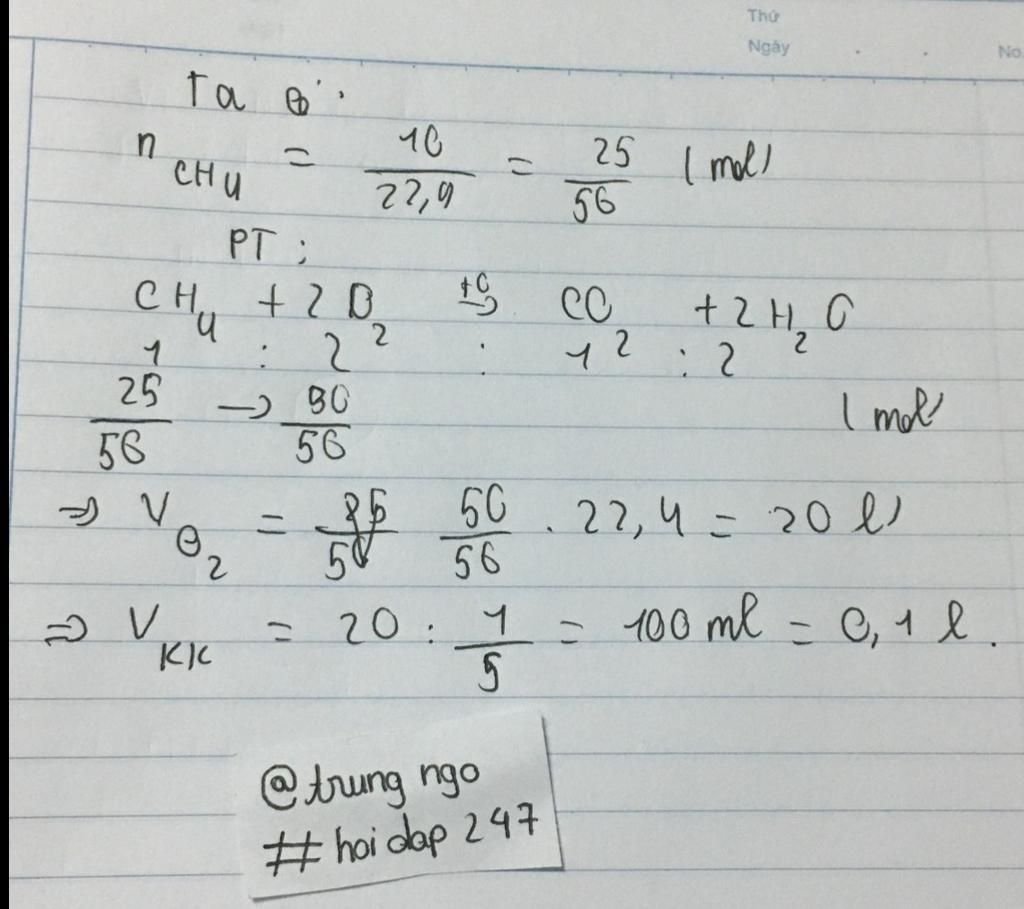 Thứ
Ngày . . No.
Ta có:
n CH4 = 10/22,4 = 25/56 (mol)
PT:
CH4 + 2O2 t0→ CO2 + 2H2O
1 : 2 : 1 : 2
25/56 → 50/56 (mol)
⇒ VO2 = 50/56 . 22,4 = 20 l
⇒ VKK = 20 : 1/5 = 100 ml = 0,1 l.
@trung ngo
# hoidap 247